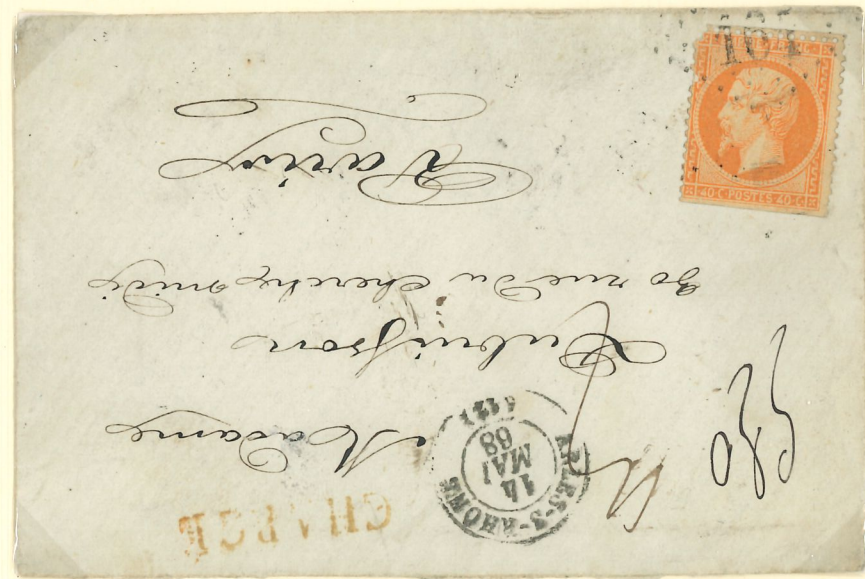 CHARGÉ
ARLES-S-RHÔNE
14
MAI
68
(12)
Madame
Dubuisson
30 rue du Cherche midi
Paris
40 C POSTES 40 C